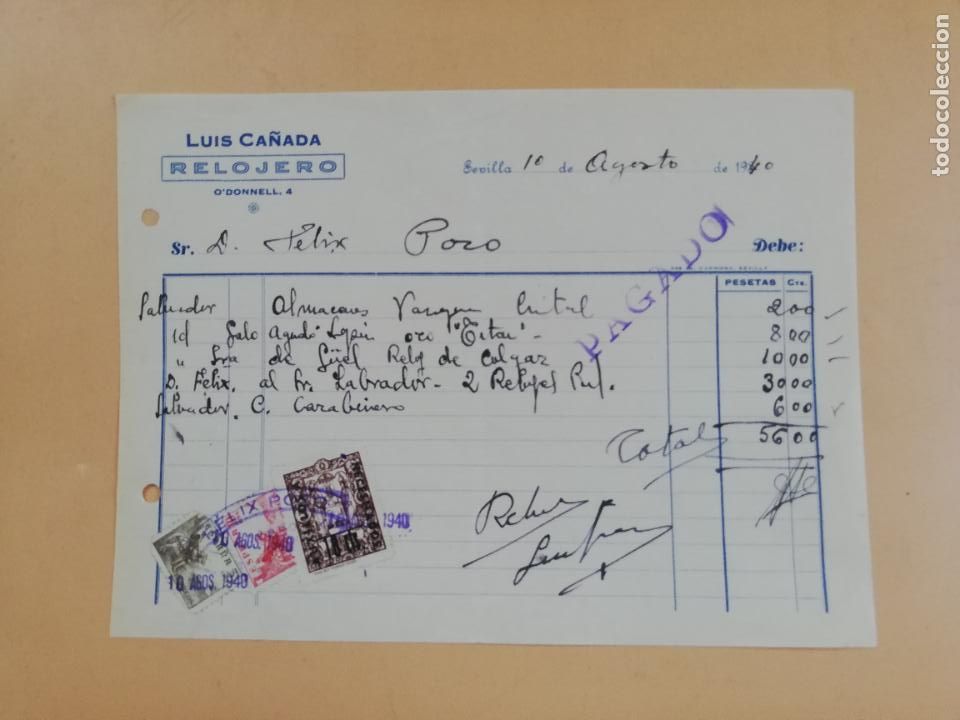 LUIS CAÑADA
RELOJERO
O'DONNELL, 4
Sevilla 10 de Agosto de 1940
Sr. D. Félix Pozo Debe:
PAGADO
PESETAS Cts.
Salvador Almacenes Cristal 2 00
id Galo oro "Titan" - 8 00
" Sra de Güel Reloj de Colgar 10 00
D. Félix. al Sr. Labrador - 2 Relojes Pul. 30 00
Salvador. C. Carabinero 6 00
Total 56 00
FELIX POZO
1940
10 AGOS. 1940
10 AGOS. 1940
todocoleccion